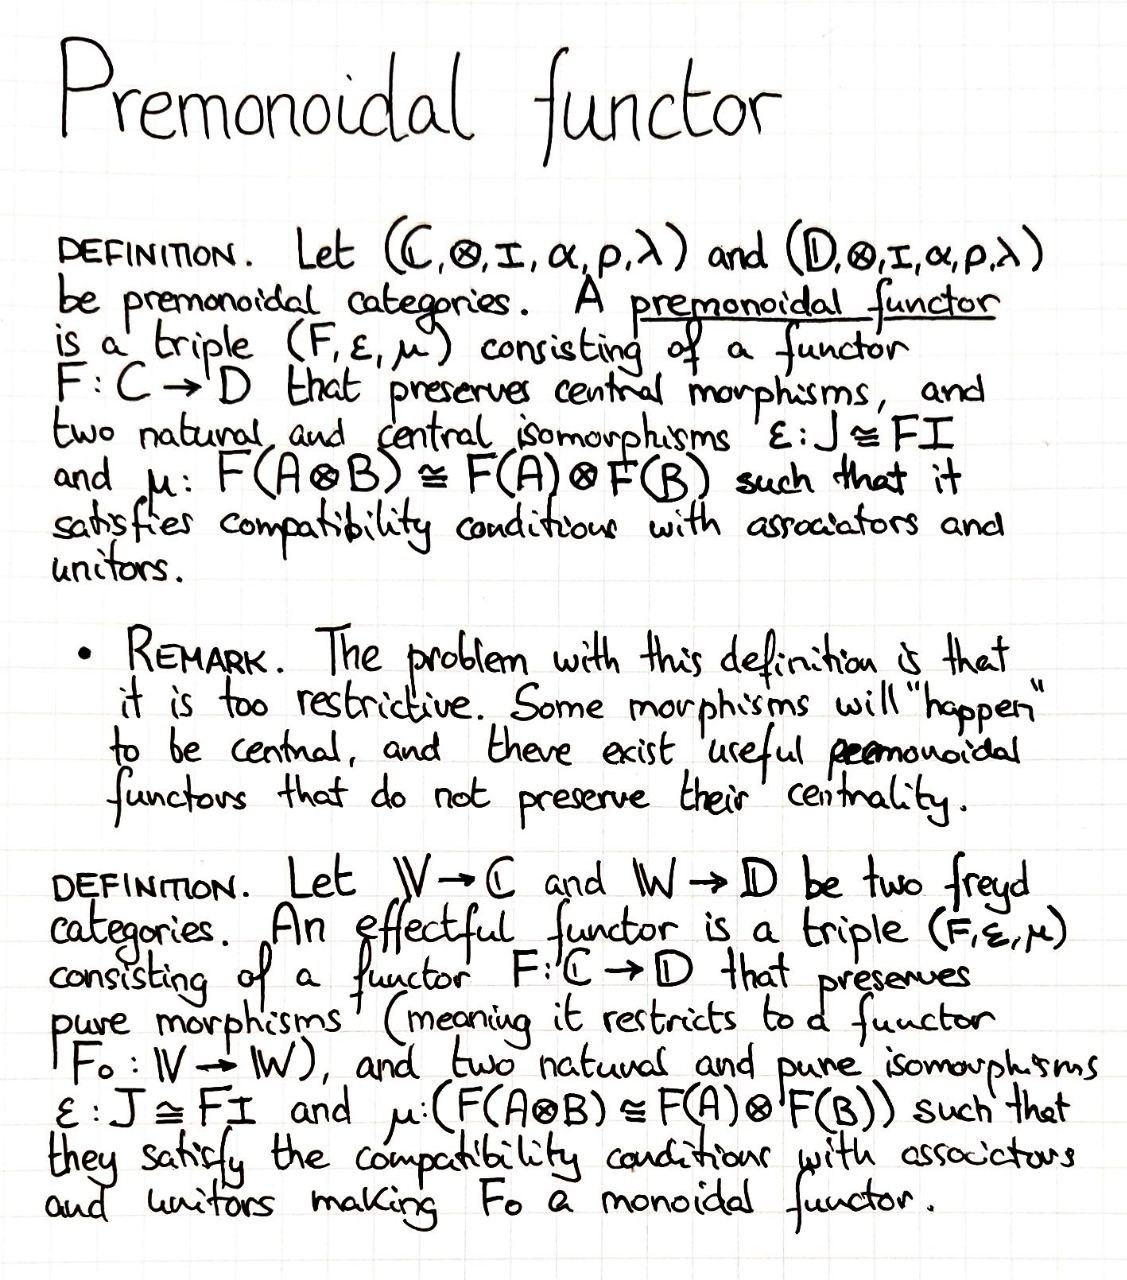 Premonoidal functor
DEFINITION. Let (ℂ,⊗,I,α,ρ,λ) and (𝔻,⊗,I,α,ρ,λ)
be premonoidal categories. A premonoidal functor
is a triple (F,ε,μ) consisting of a functor
F:C→D that preserves central morphisms, and
two natural and central isomorphisms ε:J≅FI
and μ: F(A⊗B) ≅ F(A)⊗F(B) such that it
satisfies compatibility conditions with associators and
unitors.
• REMARK. The problem with this definition is that
it is too restrictive. Some morphisms will "happen"
to be central, and there exist useful premonoidal
functors that do not preserve their centrality.
DEFINITION. Let 𝕍→ℂ and 𝕎→𝔻 be two freyd
categories. An effectful functor is a triple (F,ε,μ)
consisting of a functor F:ℂ→𝔻 that preserves
pure morphisms (meaning it restricts to a functor
F₀:𝕍→𝕎), and two natural and pure isomorphisms
ε:J≅FI and μ:(F(A⊗B)≅F(A)⊗F(B)) such that
they satisfy the compatibility conditions with associators
and unitors making F₀ a monoidal functor.